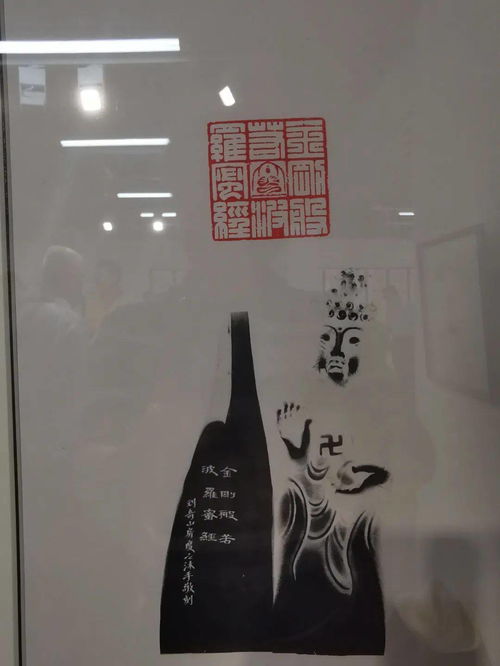 金剛般
若波
羅蜜經
卍
金剛般若
波羅蜜經
沐手敬刻